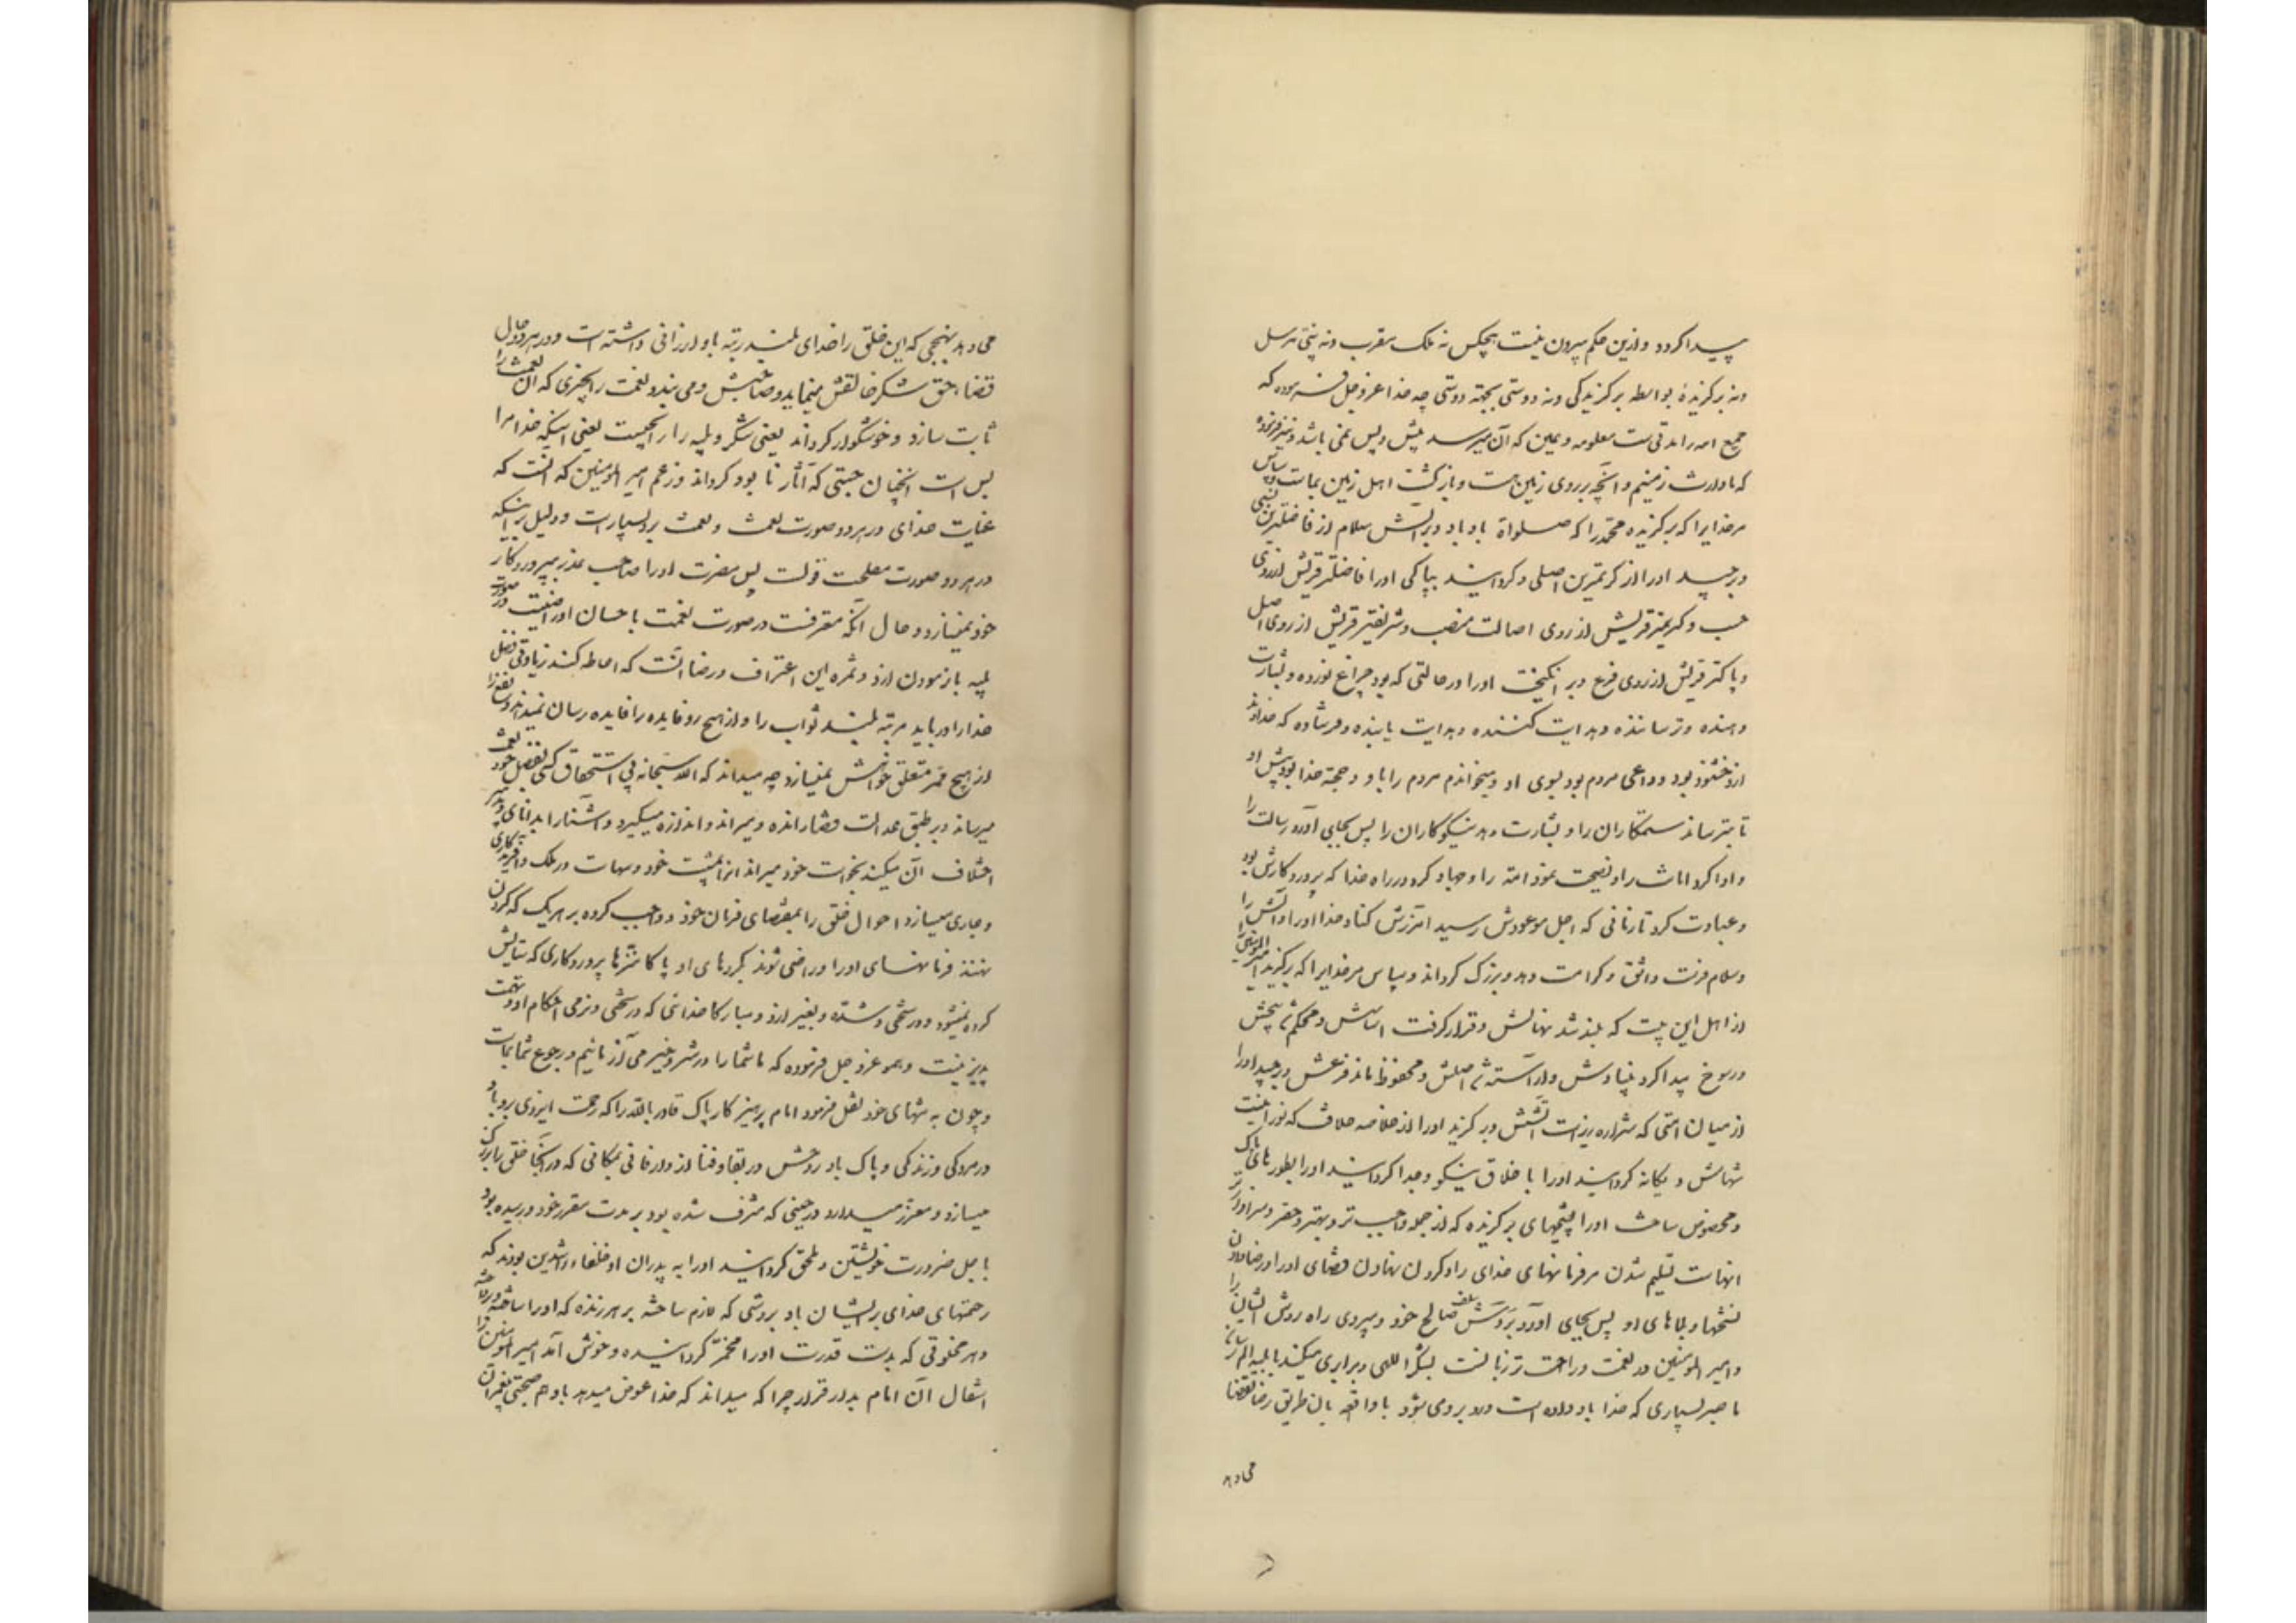 پیدا کردد و ازین حکم بیرون نیست هیچکس نه ملک مقرب و نه نبی مرسل
و نه برگزیدهٔ بواسطه برگزیدگی و نه دوستی بجهته دوستی چه خدا عز و جل فرموده که
جمیع امه را مدتی ست معلومه و معین که آن میرسد پیش و پس نمی باشد و نیز فرموده
که ما وارث زمینیم و آنچه بر روی زمین هست و بازگشت اهل زمین بماست و سپاس
مر خدایرا که برگزیده محمد را که صلواة باد باو و بر آلش سلام از فاضلترین نسبی
و برچید او را از کریمترین اصلی و گردانید بپاکی او را فاضلتر قریش از روی
حسب و کریمتر قریش از روی اصالت منصب و شریفتر قریش از روی اصل
و پاکتر قریش از روی فرع و بر انگیخت او را در حالتی که بود چراغ نور ده و بشارت
دهنده و ترساننده و هدایت کننده و هدایت یابنده و فرستاده که خداوند
ازو خشنود بود و داعی مردم بود بسوی او و میخواندم مردم را باو و حجته خدا بود پیش او
تا بترساند ستمکاران را و بشارت دهد نیکوکاران را پس بجای آورد رسالت را
و ادا کرد امانت را و نصیحت نمود امته را و جهاد کرد در راه خدا که پروردکارش بود
و عبادت کرد تا زمانی که اجل موعودش رسید آمرزش کناد خدا او را و آلش را
و سلام فرستد و کرامت دهد و بزرگ گرداند و سپاس مر خدایرا که برگزید امیر المومنین را
از اهل این بیت که بلند شد نهالش و قرار گرفت اساسش و محکم شد بیخش
و رسوخ پیدا کرد بنیادش و آراسته شد اصلش و محفوظ ماند فرعش و برچید او را
از میان امتی که شراره ریزست آتشش و برگزید او را از خلاصه خلافت که نور افیست
شهابش و یگانه گردانید او را با خلاق نیکو و جدا گردانید او را بطورهای پاک
و مخصوص ساخت او را بشیمهای برگزیده که از جمله واجب تر و بهتر و سزاوارتر
آنهاست تسلیم شدن مر فرمانهای خدای را و گردن نهادن قضای او را و رضا دادن
نعمتها و بلاهای او پس بجای آورد بروش سلف صالح خود و پیروی راه روش ایشان را
و امیر المومنین در نعمت و راحت تر زبانست بشکر اللهی و برابری میکند با بلیه
با صبر بسیاری که خدا باو داده است و رو بروی میشود با واقعه بان طریق رضا بقضا
می دهد
می دهد بنهجی که این خلق را خدای بلند رتبه باو ارزانی داشته است و در هر دو حال
قضاء حق شکر خالقش مینماید و صاحبش و می بندد نعمت را بچیزی که آن نعمت را
ثابت سازد و خوشگوار گرداند یعنی شکر و بلیه را بانچیست یعنی اینکه خدا مرا
بس است آنچنان حسبی که آثار نابود گرداند و زعم امیر المومنین که آنست که
عنایت خدای در هر دو صورت نعمت و نقمت برو بسیارست و دلیل بر اینکه
در هر دو صورت مصلحت قولست پس مضرت او را صاحب عذر پروردکار
خود نمیسازد و حال آنکه معترفست در صورت نعمت با حسان او را ضیست در صورت
بلیه باز مودن ازو و ثمره این اعتراف و رضا آنست که احاطه کند زیادتی فضل
خدا را و دریابد مرتبه بلند ثواب را و از هیچ رو فایده را فایده رسان نمیداند و نفع را
از هیچ ممر متعلق خواهش نمیسازد چه میداند که الله سبحانه بی استحقاق کسی بفضل خود نعمت
میرساند و بر طبق عدالت قضا رانده و میراند و اندازه میگیرد و اشیا را بدانای و تدبیر
اختلاف آن میکند بخواست خود میراند امرا بمشیت خود و مهمات در ملک و آفریدکاری
و جاری میسازد احوال خلق را بمقتضای فرمان خود و واجب کرده بر هریک که گردن
نهند فرمانهای او را و راضی شوند بکردهای او پاکا منزها پروردکاری که ستایش
کرده نمیشود در سختی و شده و بغیر ازو و مبارکا خدائی که در سختی و نرمی احکام او تهمت
پذیر نیست و هم او عز و جل فرموده که ما شما را در شر و خیر می آزمائیم و رجوع شما بماست
و چون به منتهای خود نقل فرمود امام پرهیزکار پاک قادر بالله را که رحمت ایزدی برو باد
در مردگی و زندگی و پاک باد روحش در بقا و فنا از دار فانی بمکانی که در آنجا خلق را بزرگ
میسازد و معزز میدارد در حینی که مشرف شده بود بر مدت مقرر خود و رسیده بود
باجل ضرورت خویشتن و ملحق گردانید او را به پدران او خلفاء راشدین بودند که
رحمتهای خدای بر ایشان باد بروشی که لازم ساخته بر هر زنده که او را ساخته و پرداخته
و هر مخلوقی که بدست قدرت او را مخمّر گردانیده و خوش آمد امیر المومنین را
انتقال آن امام بدار قرار چرا که میداند که خدا عوض میدهد باو هم صحبتی پیغمبران